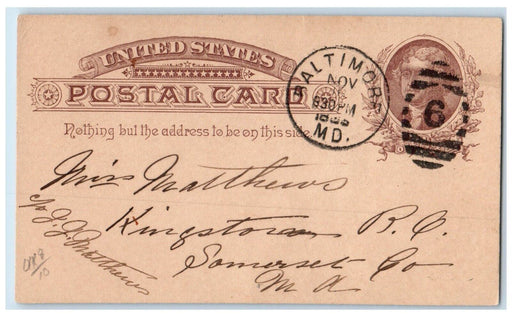 UNITED STATES
POSTAL CARD
Nothing but the address to be on this side.
BALTIMORE
NOV
630PM
MD.
6
Miss Matthews
Kingston R. C.
Somerset Co
Md
c/o J. J. Matthews